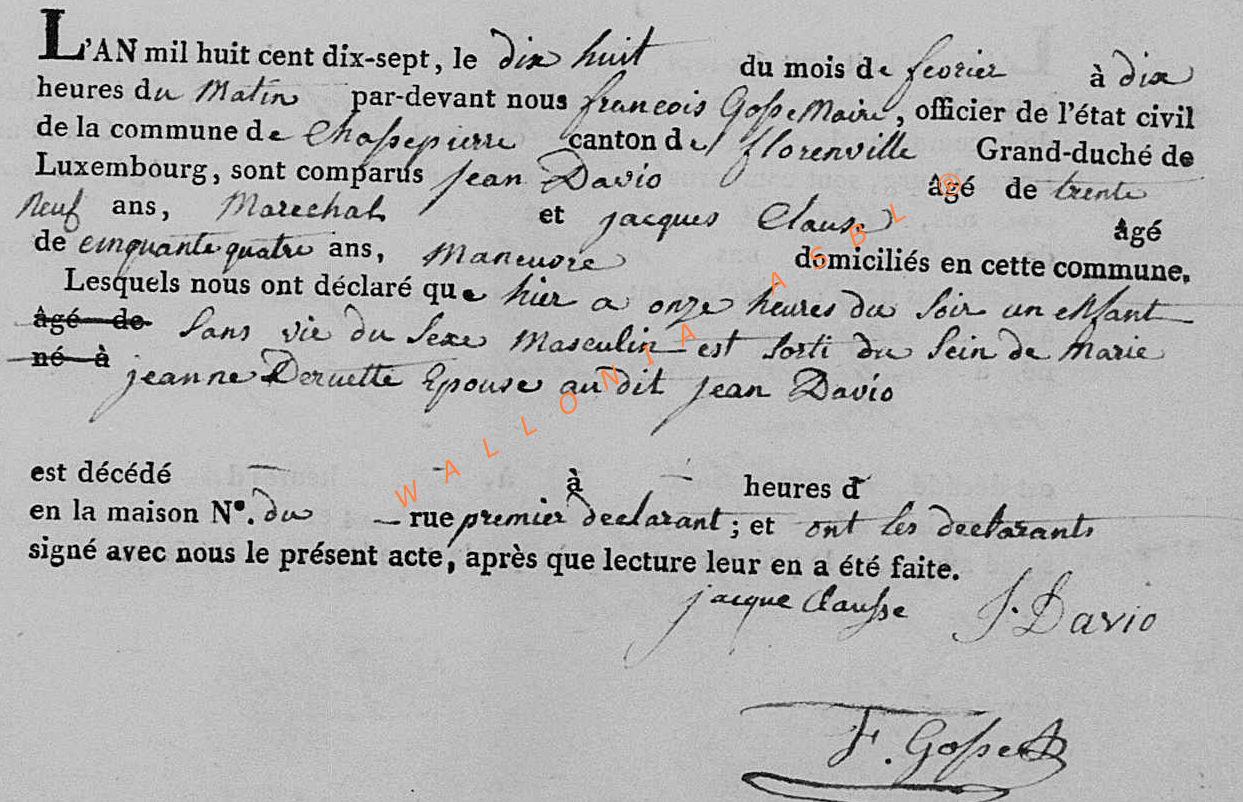 L'AN mil huit cent dix-sept, le dix huit du mois de fevrier à dix
heures du Matin par-devant nous francois Gosse Maire, officier de l'état civil
de la commune de Chassepierre canton de florenville Grand-duché de
Luxembourg, sont comparus jean Davio âgé de trente
Neuf ans, Marechal et jacques Clausse âgé
de cinquante quatre ans, Maneuvre domiciliés en cette commune.
Lesquels nous ont déclaré que hier a onze heures du Soir un enfant
âgé de Sans vie du Sexe Masculin est Sorti du Sein de Marie
né à jeanne Deruette Epouse au dit jean Davio
est décédé à heures d
en la maison N°. du rue premier declarant ; et ont les declarants
signé avec nous le présent acte, après que lecture leur en a été faite.
jacque Clausse J. Davio
F. Gosse
WALLONIA ASBL ®